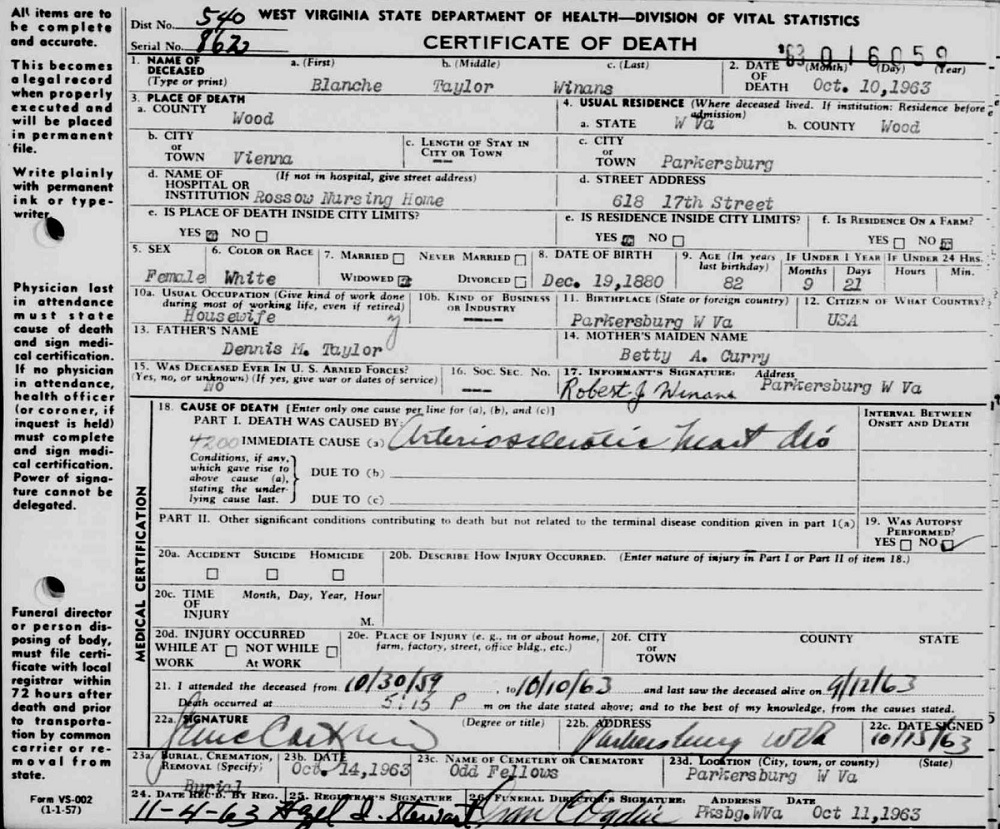 All items are to
be complete
and accurate.
This becomes
a legal record
when properly
executed and
will be placed
in permanent
file.
Write plainly
with permanent
ink or type-
writer.
Physician last
in attendance
must state
cause of death
and sign medi-
cal certification.
If no physician
in attendance,
health officer
(or coroner, if
inquest is held)
must complete
and sign medi-
cal certification.
Power of signa-
ture cannot be
delegated.
Funeral director
or person dis-
posing of body,
must file certi-
ficate with local
registrar within
72 hours after
death and prior
to transporta-
tion by common
carrier or re-
moval from
state.
Form VS-002
(1-1-57)
Dist No. 540 WEST VIRGINIA STATE DEPARTMENT OF HEALTH—DIVISION OF VITAL STATISTICS
Serial No. 862 CERTIFICATE OF DEATH '63 016059
1. NAME OF DECEASED (Type or print) a. (First) b. (Middle) c. (Last) 2. DATE OF DEATH (Month) (Day) (Year)
Blanche Taylor Winans Oct. 10,1963
3. PLACE OF DEATH 4. USUAL RESIDENCE (Where deceased lived. If institution: Residence before admission)
a. COUNTY Wood a. STATE W Va b. COUNTY Wood
b. CITY or TOWN Vienna c. LENGTH OF STAY IN CITY OR TOWN -- c. CITY or TOWN Parkersburg
d. NAME OF HOSPITAL OR INSTITUTION (If not in hospital, give street address) Rossow Nursing Home d. STREET ADDRESS 618 17th Street
e. IS PLACE OF DEATH INSIDE CITY LIMITS? YES NO e. IS RESIDENCE INSIDE CITY LIMITS? YES NO f. IS RESIDENCE ON A FARM? YES NO
5. SEX 6. COLOR OR RACE 7. MARRIED NEVER MARRIED WIDOWED DIVORCED 8. DATE OF BIRTH 9. AGE (In years last birthday) IF UNDER 1 YEAR Months Days IF UNDER 24 HRS. Hours Min.
Female White Dec. 19,1880 82 9 21
10a. USUAL OCCUPATION (Give kind of work done during most of working life, even if retired) 10b. KIND OF BUSINESS OR INDUSTRY 11. BIRTHPLACE (State or foreign country) 12. CITIZEN OF WHAT COUNTRY?
Housewife ---- Parkersburg W Va USA
13. FATHER'S NAME 14. MOTHER'S MAIDEN NAME
Dennis M. Taylor Betty A. Curry
15. WAS DECEASED EVER IN U. S. ARMED FORCES? (Yes, no, or unknown) (If yes, give war or dates of service) 16. SOC. SEC. NO. 17. INFORMANT'S SIGNATURE: Address
NO -- Robert J Winans Parkersburg W Va
MEDICAL CERTIFICATION
18. CAUSE OF DEATH [Enter only one cause per line for (a), (b), and (c)] INTERVAL BETWEEN ONSET AND DEATH
PART I. DEATH WAS CAUSED BY:
4200 IMMEDIATE CAUSE (a) Arteriosclerotic heart dis
Conditions, if any, which gave rise to above cause (a), stating the underlying cause last. DUE TO (b)
DUE TO (c)
PART II. Other significant conditions contributing to death but not related to the terminal disease condition given in part 1(a) 19. WAS AUTOPSY PERFORMED? YES NO
20a. ACCIDENT SUICIDE HOMICIDE 20b. DESCRIBE HOW INJURY OCCURRED. (Enter nature of injury in Part I or Part II of item 18.)
20c. TIME OF INJURY Month, Day, Year, Hour M.
20d. INJURY OCCURRED WHILE AT WORK NOT WHILE AT WORK 20e. PLACE OF INJURY (e. g., in or about home, farm, factory, street, office bldg., etc.) 20f. CITY or TOWN COUNTY STATE
21. I attended the deceased from 10/30/59, to 10/10/63 and last saw the deceased alive on 9/12/63
Death occurred at 5:15 P m on the date stated above; and to the best of my knowledge, from the causes stated.
22a. SIGNATURE (Degree or title) 22b. ADDRESS 22c. DATE SIGNED
Parkersburg WVa 10/15/63
23a. BURIAL, CREMATION, REMOVAL (Specify) 23b. DATE 23c. NAME OF CEMETERY OR CREMATORY 23d. LOCATION (City, town, or county) (State)
Burial Oct. 14,1963 Odd Fellows Parkersburg W Va
24. DATE REC'D. BY REG. 25. REGISTRAR'S SIGNATURE 26. FUNERAL DIRECTOR'S SIGNATURE: ADDRESS DATE
11-4-63 Stewart Pksbg.WVa Oct 11,1963